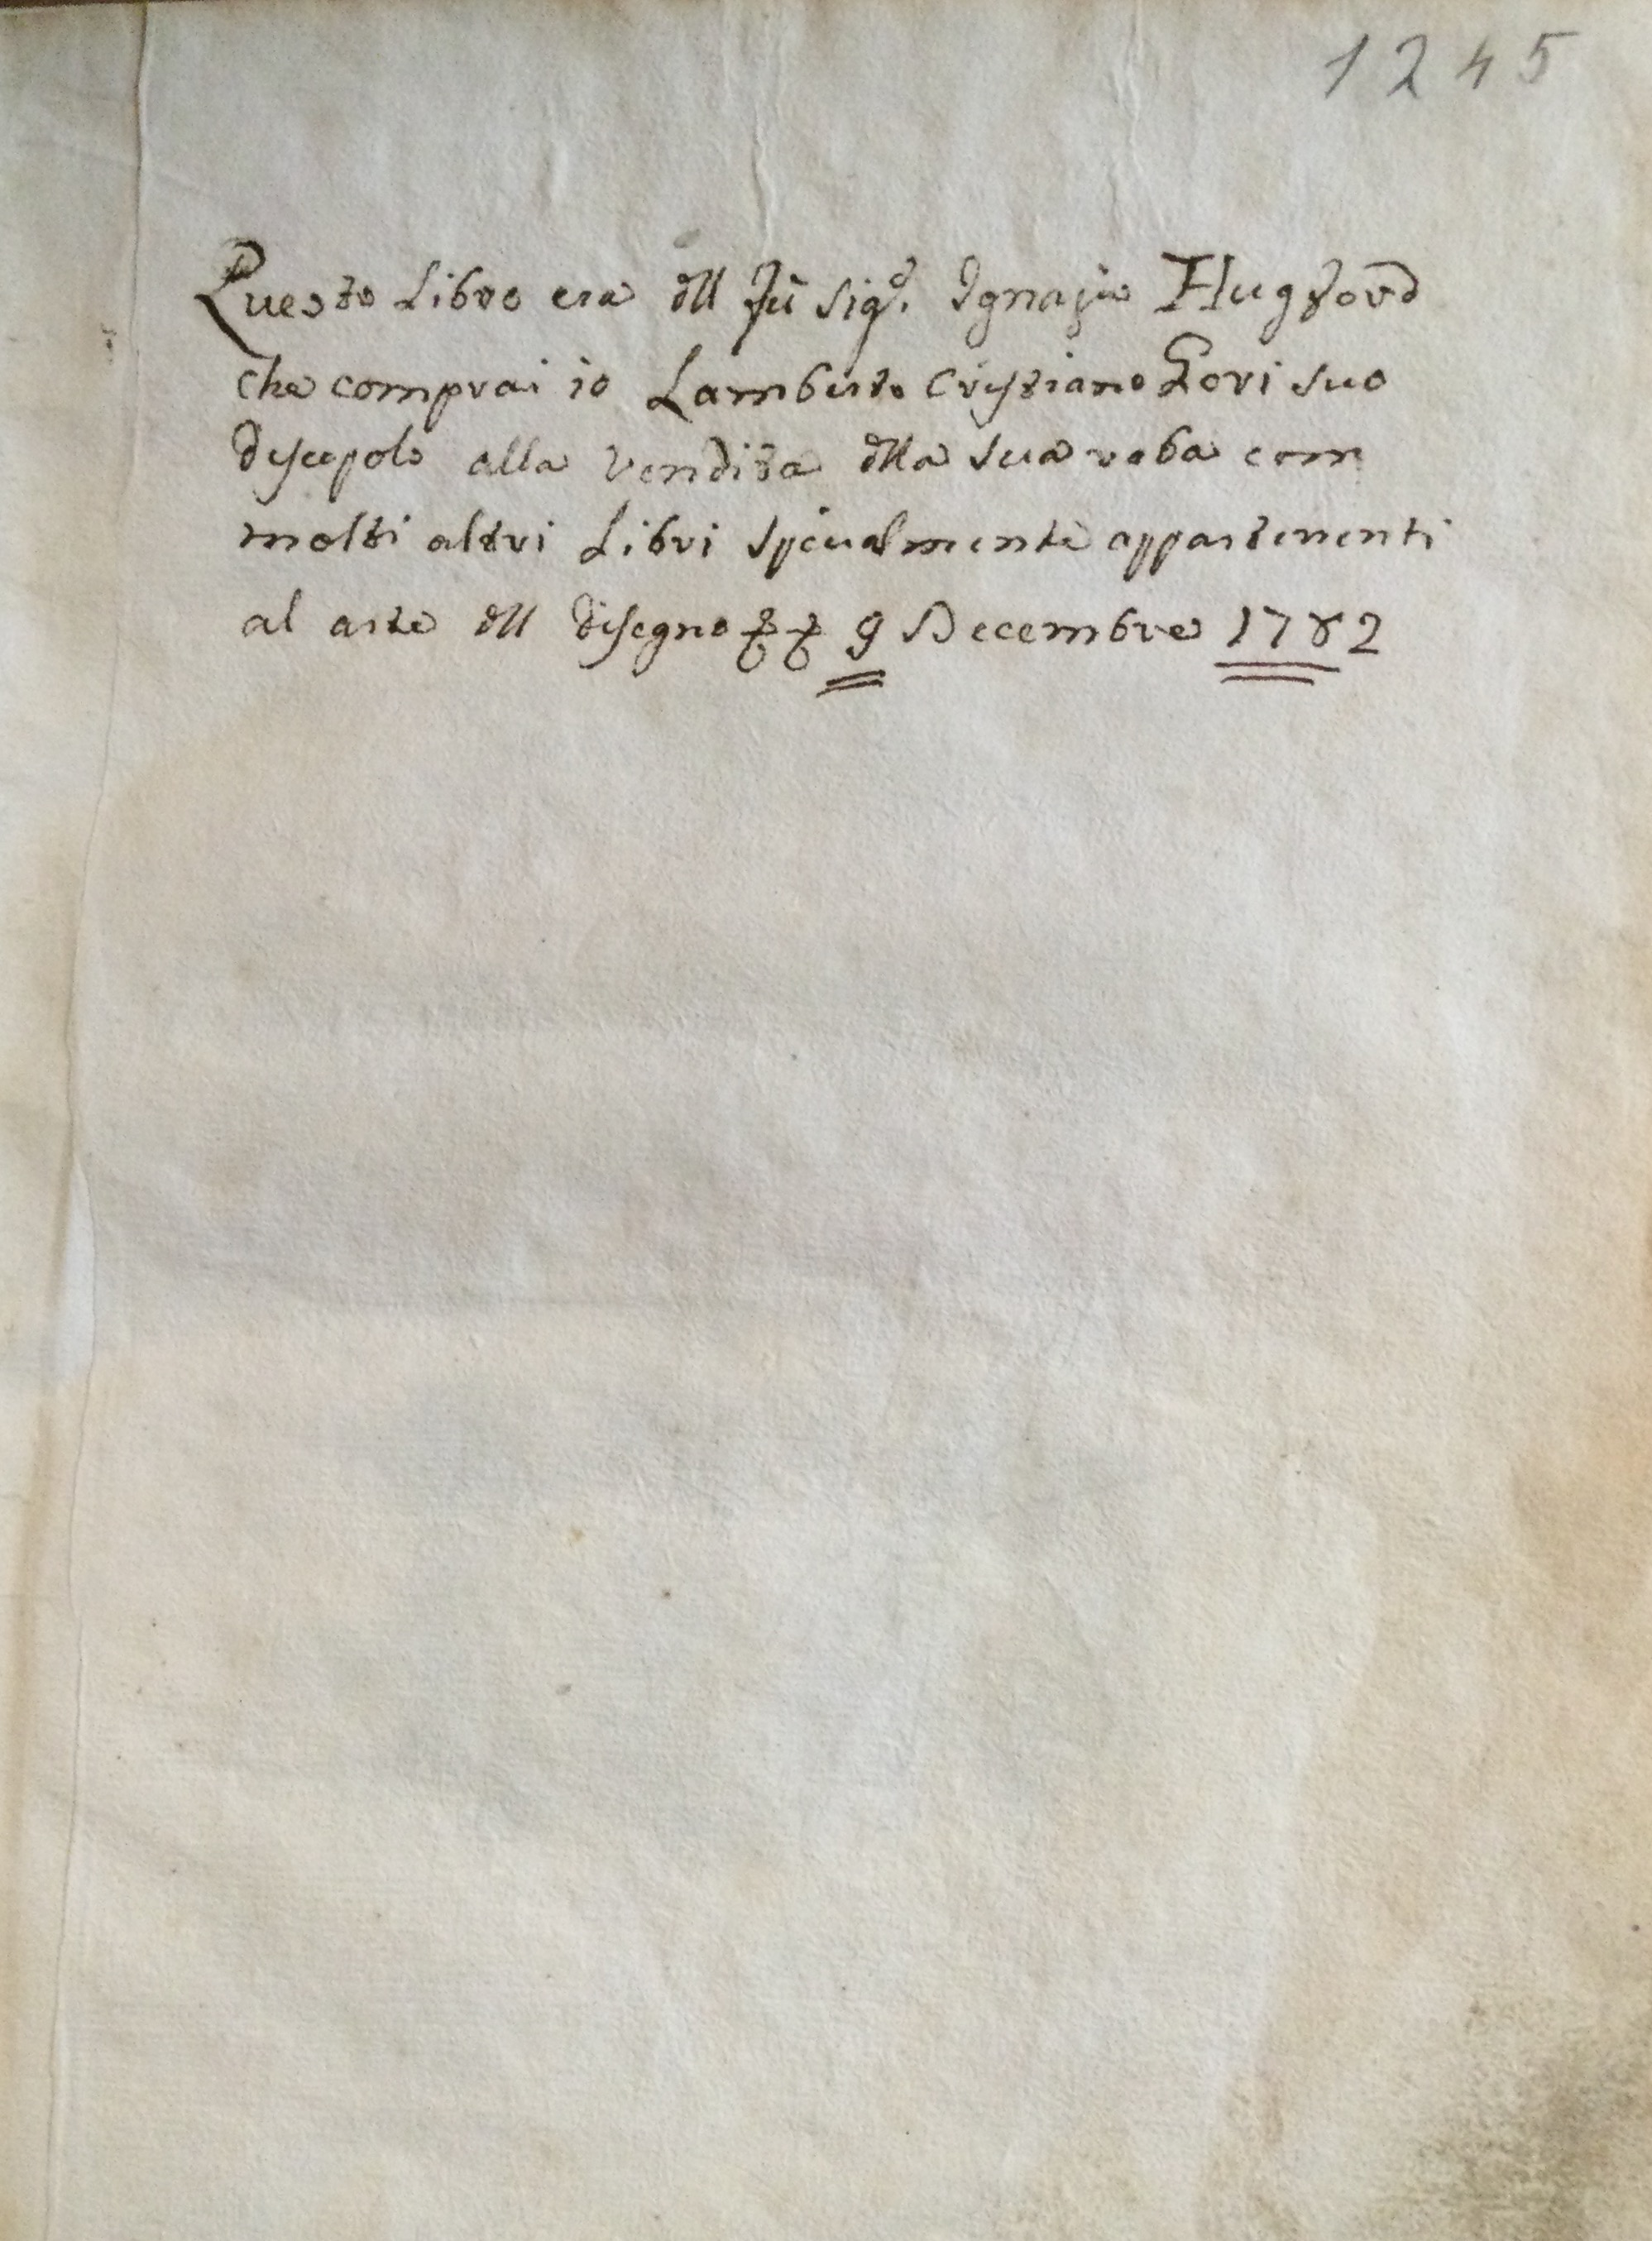 1245
Questo Libro era dll Fù Sig.r Ignazio Hugford
che comprai io Lamberto Cristiano Gori suo
discepolo alla vendita dlla sua roba com
molti altri Libri spicialmente appartenenti
al arte dll disegno 9 Decembre 1782